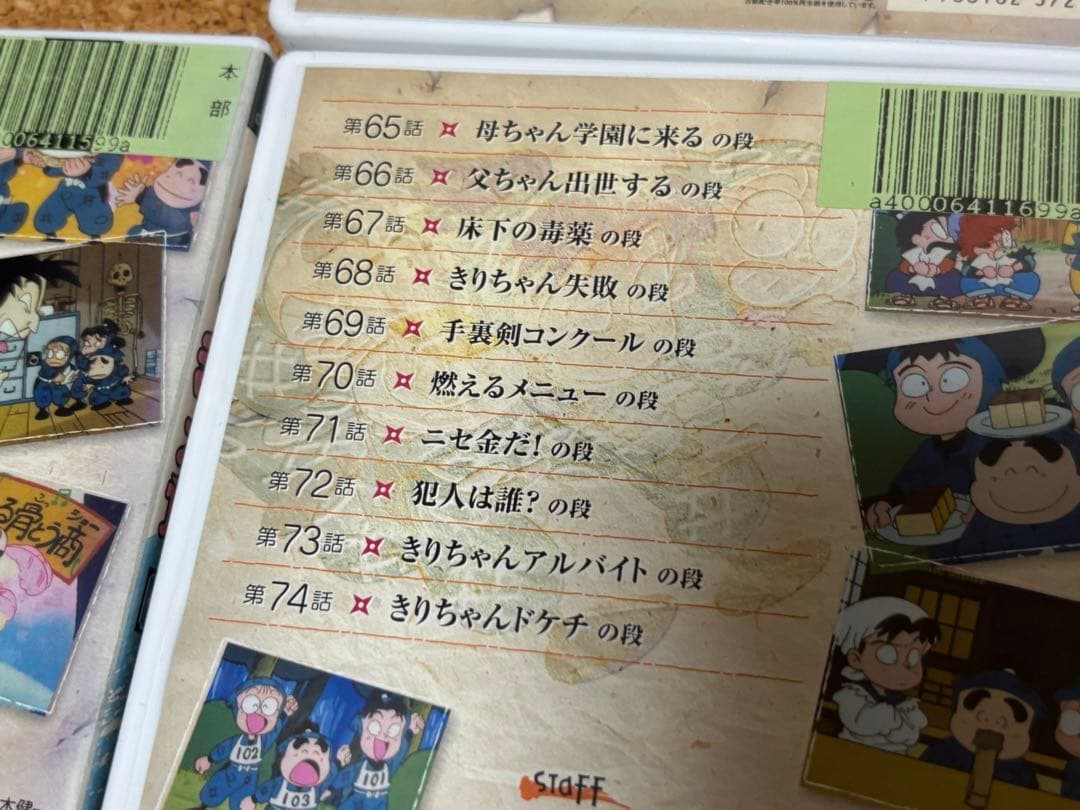 本
部
第65話 母ちゃん学園に来る の段
第66話 父ちゃん出世する の段
第67話 床下の毒薬 の段
第68話 きりちゃん失敗 の段
第69話 手裏剣コンクール の段
第70話 燃えるメニュー の段
第71話 ニセ金だ! の段
第72話 犯人は誰? の段
第73話 きりちゃんアルバイト の段
第74話 きりちゃんドケチ の段
a4000641169​9a
102
103
101
STAFF